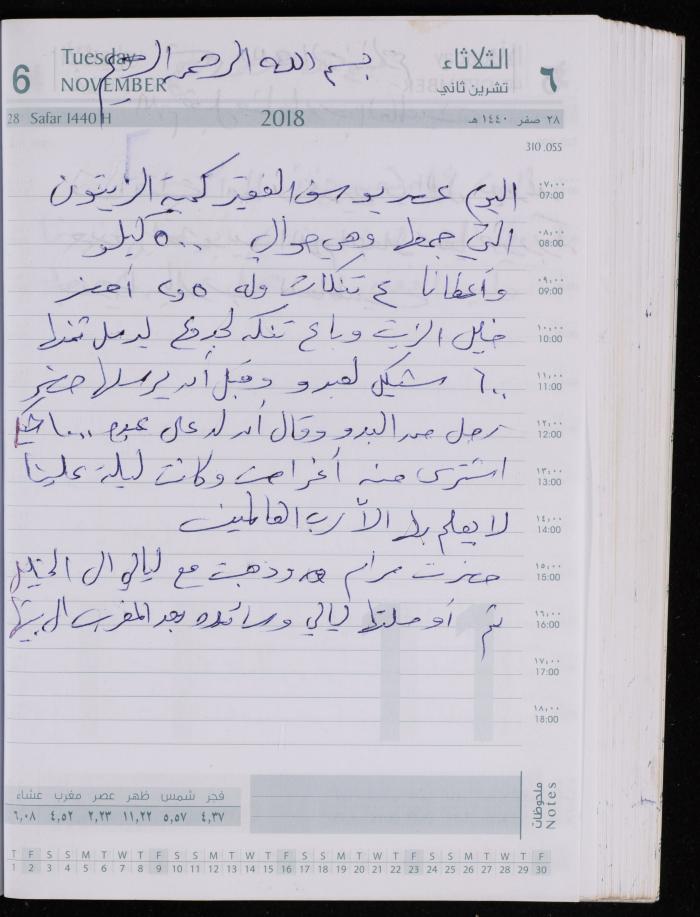 6
Tuesday
NOVEMBER
بسم الله الرحمن الرحيم
الثلاثاء
تشرين ثاني
٦
28 Safar 1440 H
2018
٢٨ صفر ١٤٤٠ هـ
310 .055
٠٧,٠٠
07:00
اليوم عصر يوسف الفقير كمية الزيتون
٠٨,٠٠
08:00
التي جمعها وهي حوالي ٥٠٠ كيلو
٠٩,٠٠
09:00
وأعطانا ٤ تنكات وله ٥ و٢ أحضر
١٠,٠٠
10:00
خليل الزيت وباع تنكه لجدها ليرسل ثمنها
١١,٠٠
11:00
٦٠٠ شيكل لعبدو وقبل أن يرسلها حضر
١٢,٠٠
12:00
رجل من البدو وقال أن له على عبدو
١٣,٠٠
13:00
اشترى منه أغراض وكانت ليلة علينا
١٤,٠٠
14:00
لا يعلم بها الا رب العالمين
١٥,٠٠
15:00
حضرت مرام وذهبت مع ليالي الى الخليل
١٦,٠٠
16:00
ثم أوصلتها ليالي وسائده بعد المغرب الى بيتها
١٧,٠٠
17:00
١٨,٠٠
18:00
فجر شمس ظهر عصر مغرب عشاء
٤,٣٧ ٥,٥٧ ١١,٢٢ ٢,٢٣ ٤,٥٢ ٦,٠٨
ملحوظات
Notes
T F S S M T W T F S S M T W T F S S M T W T F S S M T W T F
1 2 3 4 5 6 7 8 9 10 11 12 13 14 15 16 17 18 19 20 21 22 23 24 25 26 27 28 29 30